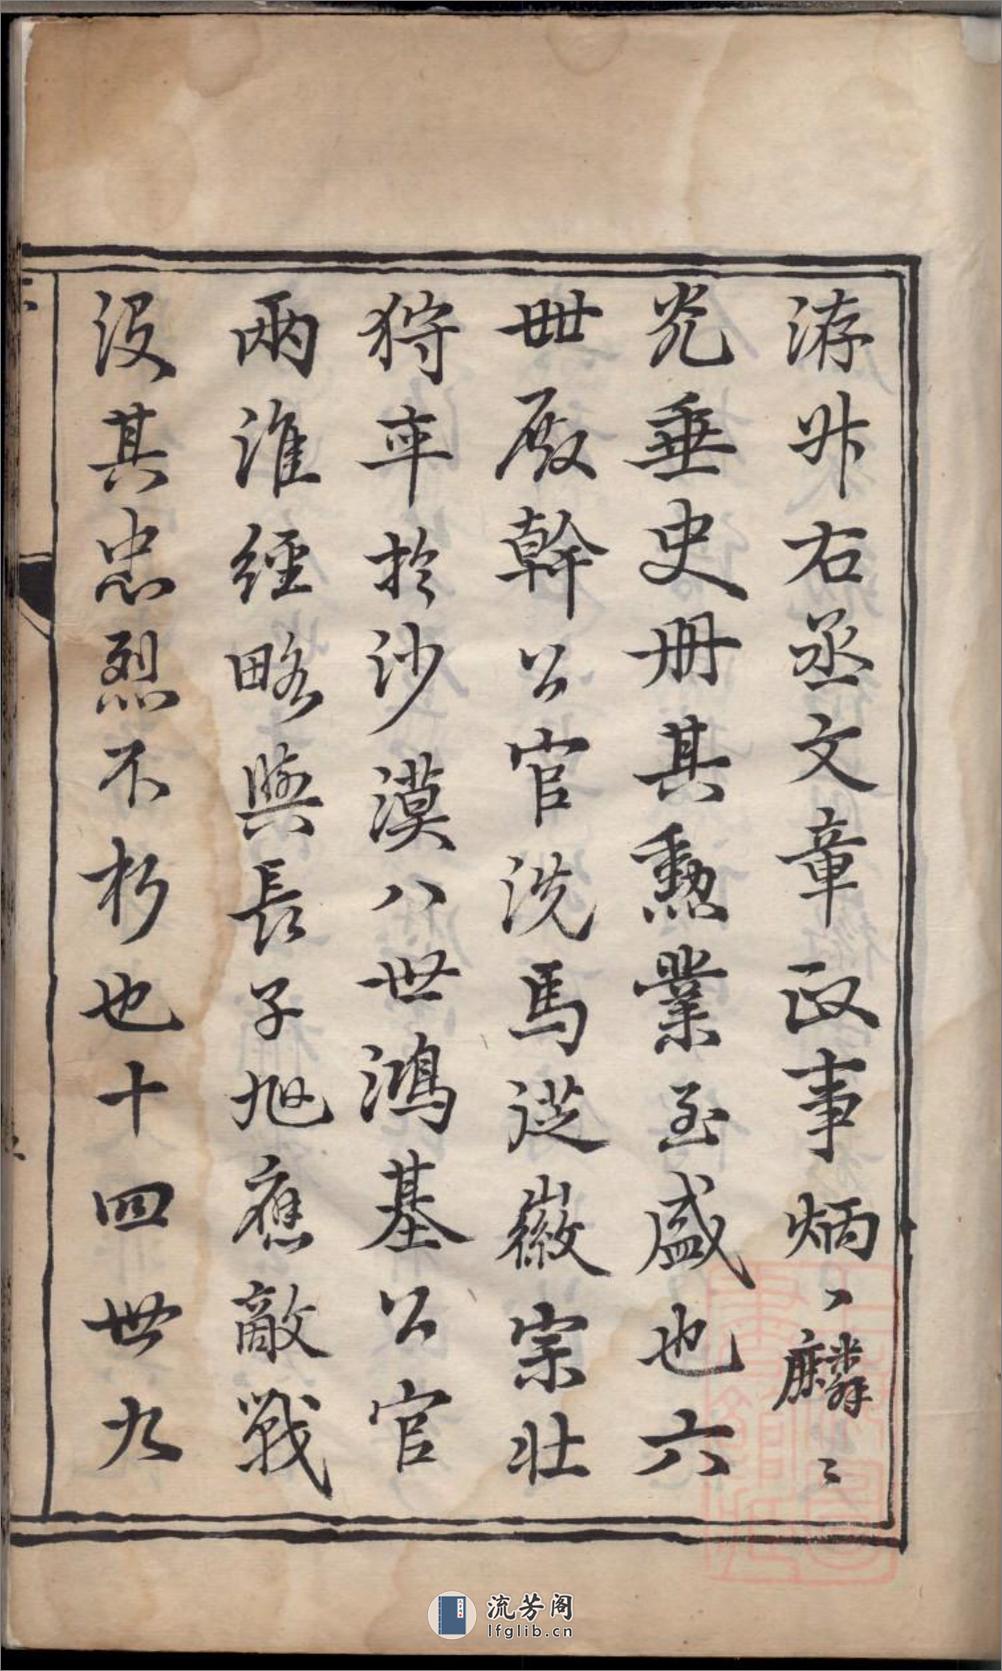 游升右丞文章政事炳〻麟〻
光垂史册其勲業至盛也六
世殿幹公官洗馬從徽宗壯
狩卒於沙漠八世鴻基公官
兩淮經略與長子旭應敵戰
没其忠烈不朽也十四世九
流芳阁
lfglib.cn